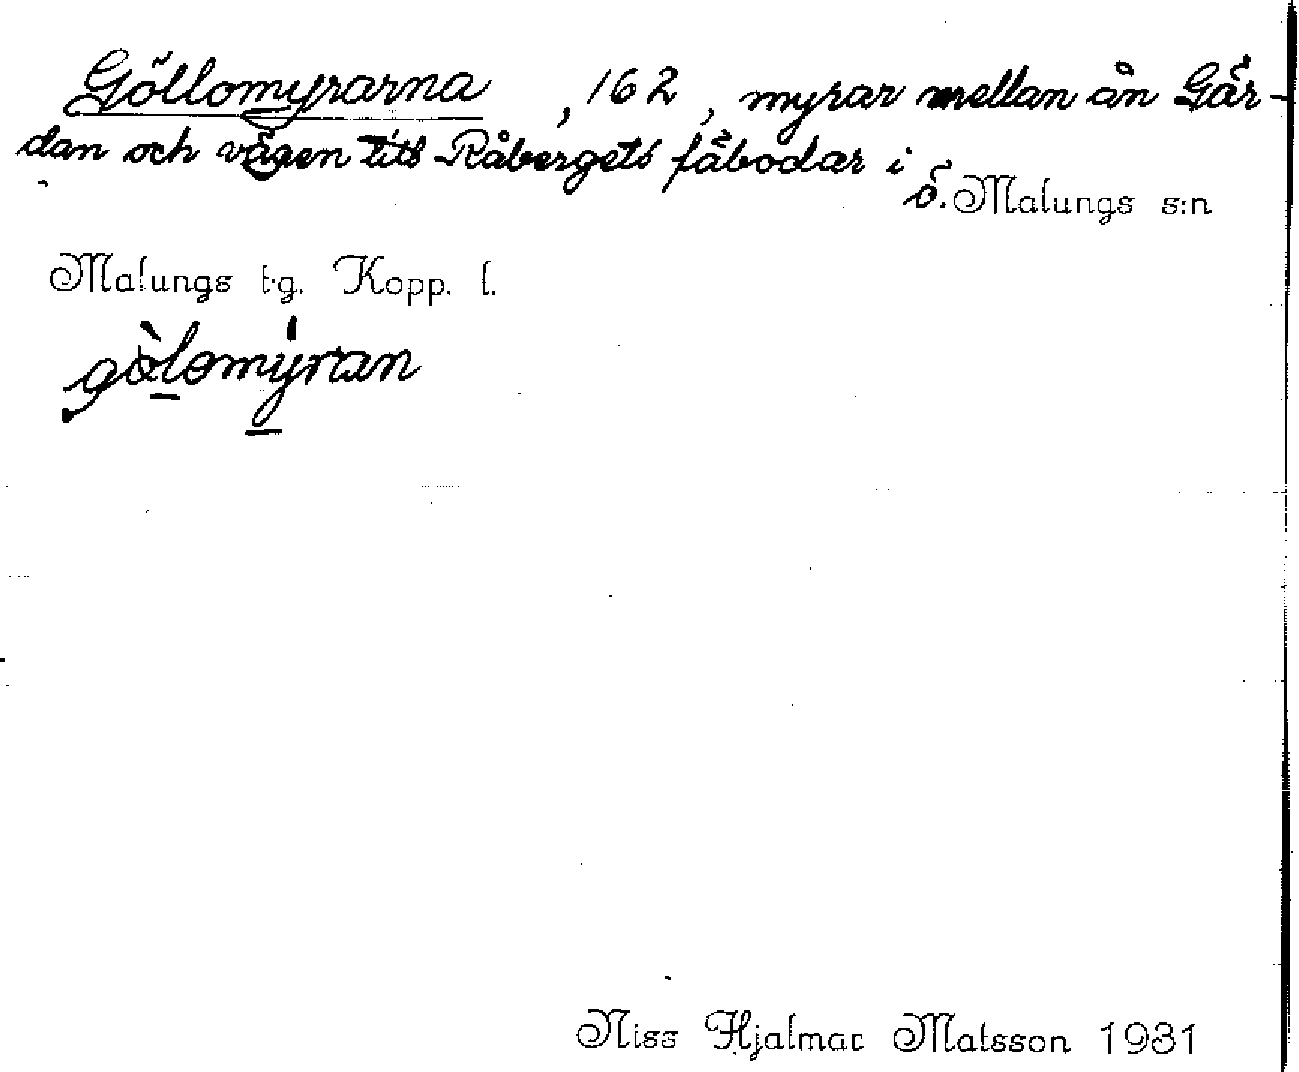 Göllomyrarna, 162, myrar mellan ån Gär-
dan och vägen till Råbergets fäbodar i
ö. Malungs s:n
Malungs tg. Kopp. l.
gòlomýran
Niss Hjalmar Matsson 1981